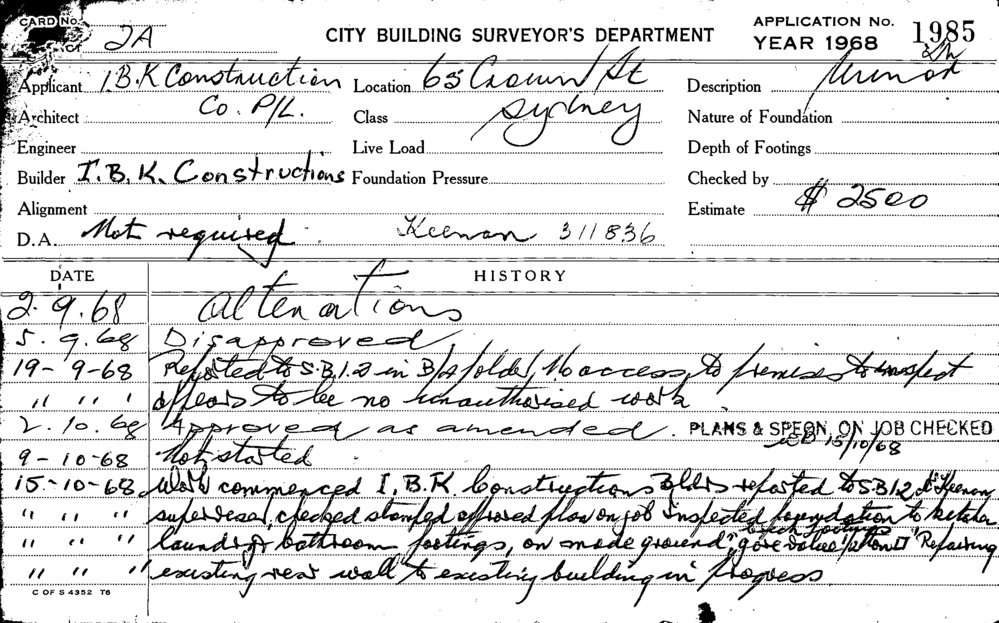 CARD No. 2A
CITY BUILDING SURVEYOR'S DEPARTMENT
APPLICATION No. 1985
YEAR 1968
Applicant I.B.K Construction Co. P/L.
Location 65 Crown St Sydney
Description Minor
Architect
Class
Nature of Foundation
Engineer
Live Load
Depth of Footings
Builder I.B.K. Constructions
Foundation Pressure
Checked by
Alignment
Estimate $ 2500
D.A. Not required
Keenan 311836
DATE HISTORY
2.9.68 Alterations
5.9.68 Disapproved
19-9-68 Reported to S.B.1.2 in B/s folder, No access to premises to inspect
" " " appears to be no unauthorised work
2.10.68 Approved as amended. PLANS & SPECN. ON JOB CHECKED
15/10/68
9-10-68 Not started
15-10-68 Work commenced I.B.K. Constructions Bldrs reported to S.B.1.2 Keenan
" " " supervisor, checked stamped approved plan on job Inspected foundation to kitchen
" " " laundry & bathroom footings, on made ground, gave Repairing
" " " existing rear wall to existing building in progress
C OF S 4352 T6